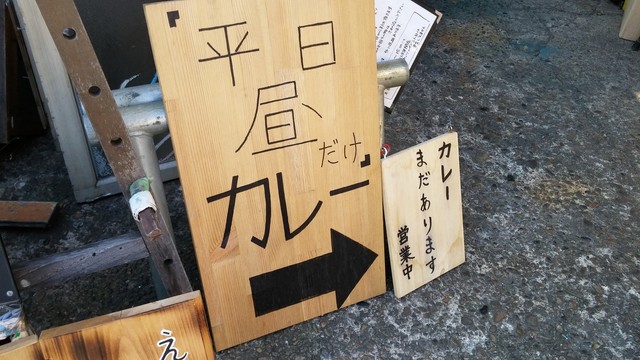 「平日
昼だけ」
カレー
カレー
まだあります
営業中
え